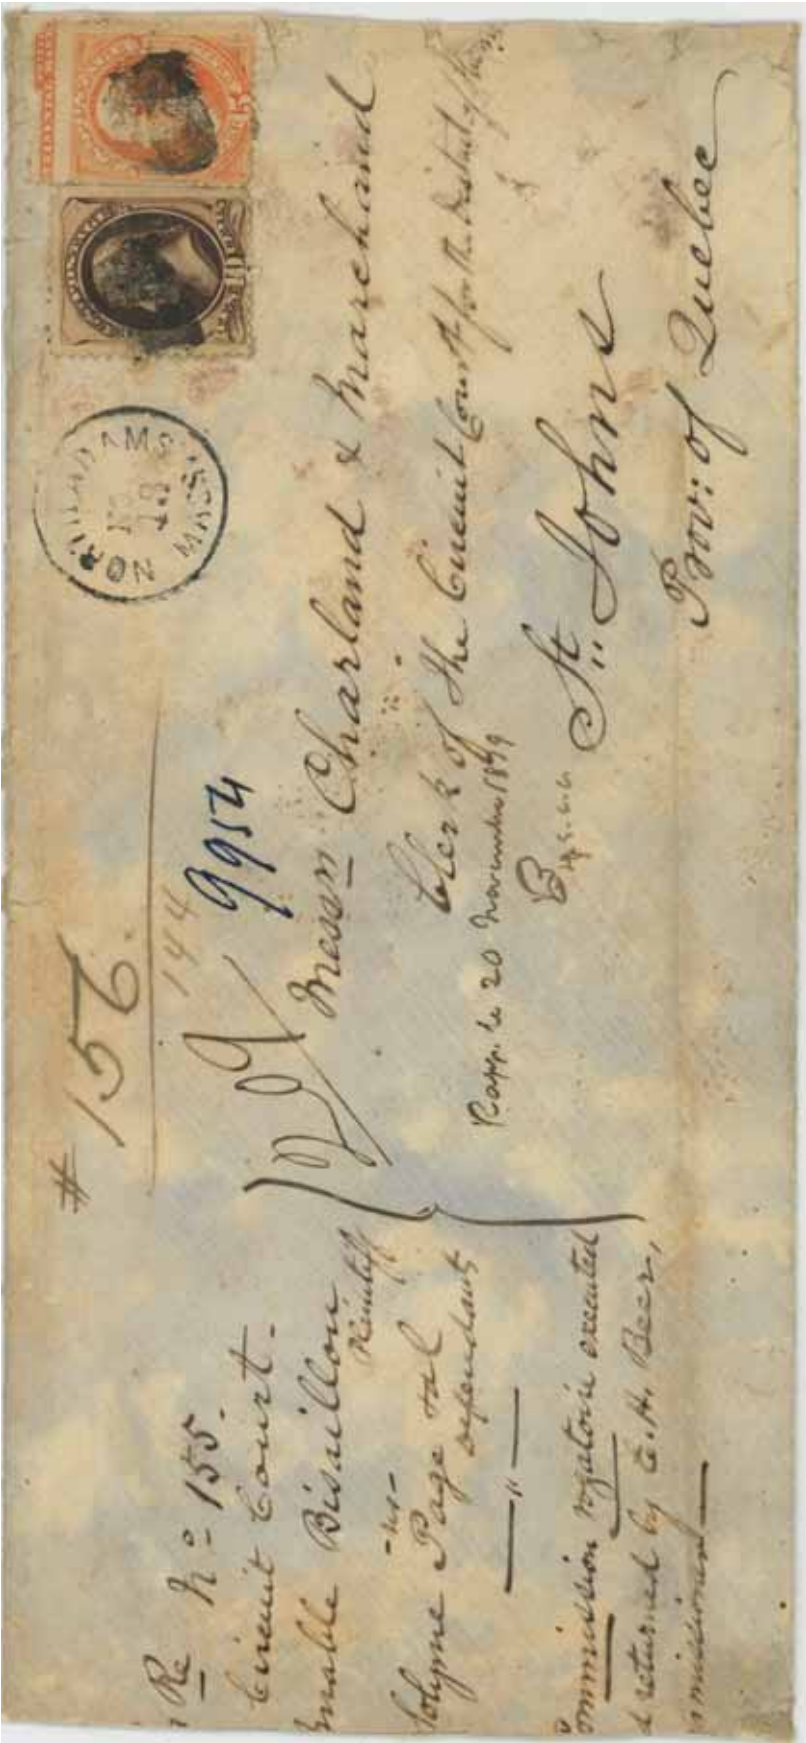 Re
No 155.
Circuit Court.
Bisaillon
Plaintiff
-vs-
Page
Defendants
— " —
ommission rogatoire executed
d returned by E. H. Beer,
mmissioner
# 156.
144
9954
Messrs. Charland & Marchand
Clerk of the Circuit Court for the District of
Rapp. le 20 novembre 1879
St. Johns
Prov: of Quebec
NORTH ADAMS
MASS.